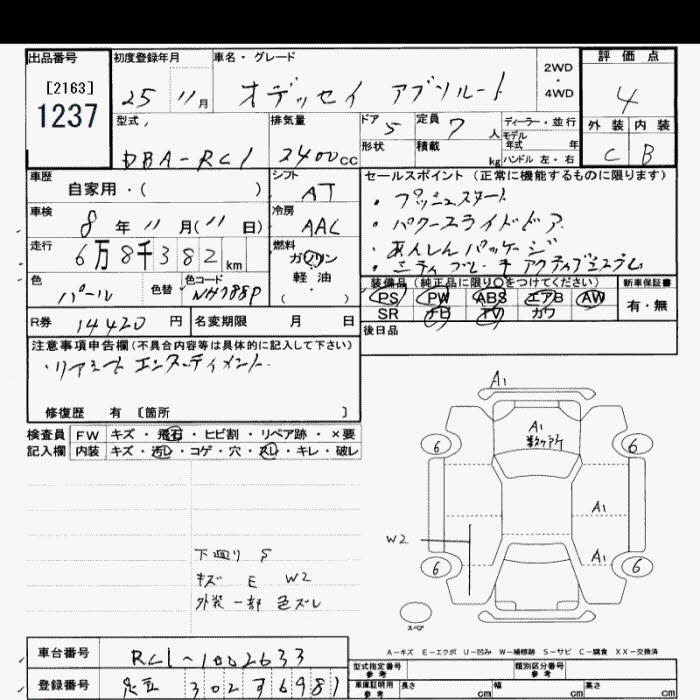 出品番号
[2163]
1237
初度登録年月
25 11 月
車名・グレード
オデッセイ アブソルート
2WD
・
4WD
評価点
4
外装 内装
C B
型式
DBA-RC1
排気量
2400 cc
ドア 5
形状
定員 7 人
積載 kg
ディーラー・並行
モデル
年式 年
ハンドル 左・右
車歴
自家用・( )
シフト
AT
車検
8 年 11 月(11 日)
冷房
AAC
走行
6万8千382 km
燃料
ガソリン
・
軽油
( )
色
パール
色替
色コード
NH788P
R券 14420 円
名変期限 月 日
セールスポイント(正常に機能するものに限ります)
・プッシュスタート
・パワースライドドア
・あんしんパッケージ
・シティブレーキアクティブシステム
装備品(純正品に限り〇をつけてください)
PS PW ABS エアB AW
SR ナビ TV カワ
新車保証書
有・無
後日品
注意事項申告欄(不具合内容等は具体的に記入して下さい)
・リアシートエンターテイメント
修復歴 有 〔箇所 〕
検査員
記入欄
FW キズ・飛石・ヒビ割・リペア跡・×要
内装 キズ・汚レ・コゲ・穴・スレ・キレ・破レ
A1
A1
数ヶ所
6
6
A1
W2
A1
6
6
スペア
下廻り S
キズ E W2
外装一部色ズレ
A-キズ E-エクボ U-凹み W-補修跡 S-サビ C-腐食 XX-交換済
車台番号
RC1-1002633
登録番号
足立 302 す 6981
型式指定番号
参考
類別区分番号
参考
車庫証明用
参考
長さ cm
幅 cm
高さ cm